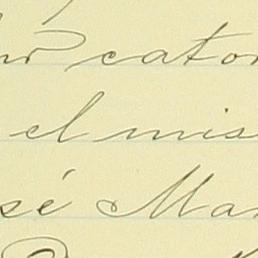 cator
el mis
sé Mar